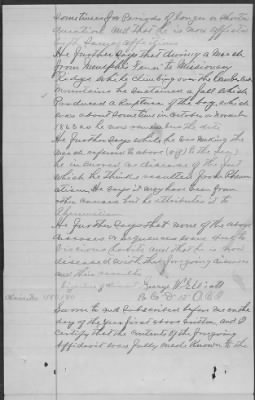 sometimes for Periods of longer or shorter
duration and that he is now afflicted
with
He further says that during a march
from Memphis Tenn to Missionary
Ridge while climbing over the Cumberland
mountains he sustained a fall which
Produced a Rupture of the bag, which
was about sometime in October or November
1863 as he now remembers the date
He further says while he was making the
march referred to above
he incurred a disease of the feet
which he thinks resulted from Rheum
atism. He says it may have been from
other causes but he attributes it to
Rheumatism
He further says that none of the above
diseases or sequences were due to
vicious habits and that he is now
diseased with the foregoing diseases
and their results
George W Elliott
Sworn to and subscribed before me on the
day of the year first above written and I
certify that the contents of the foregoing
Affidavit was fully made known to the